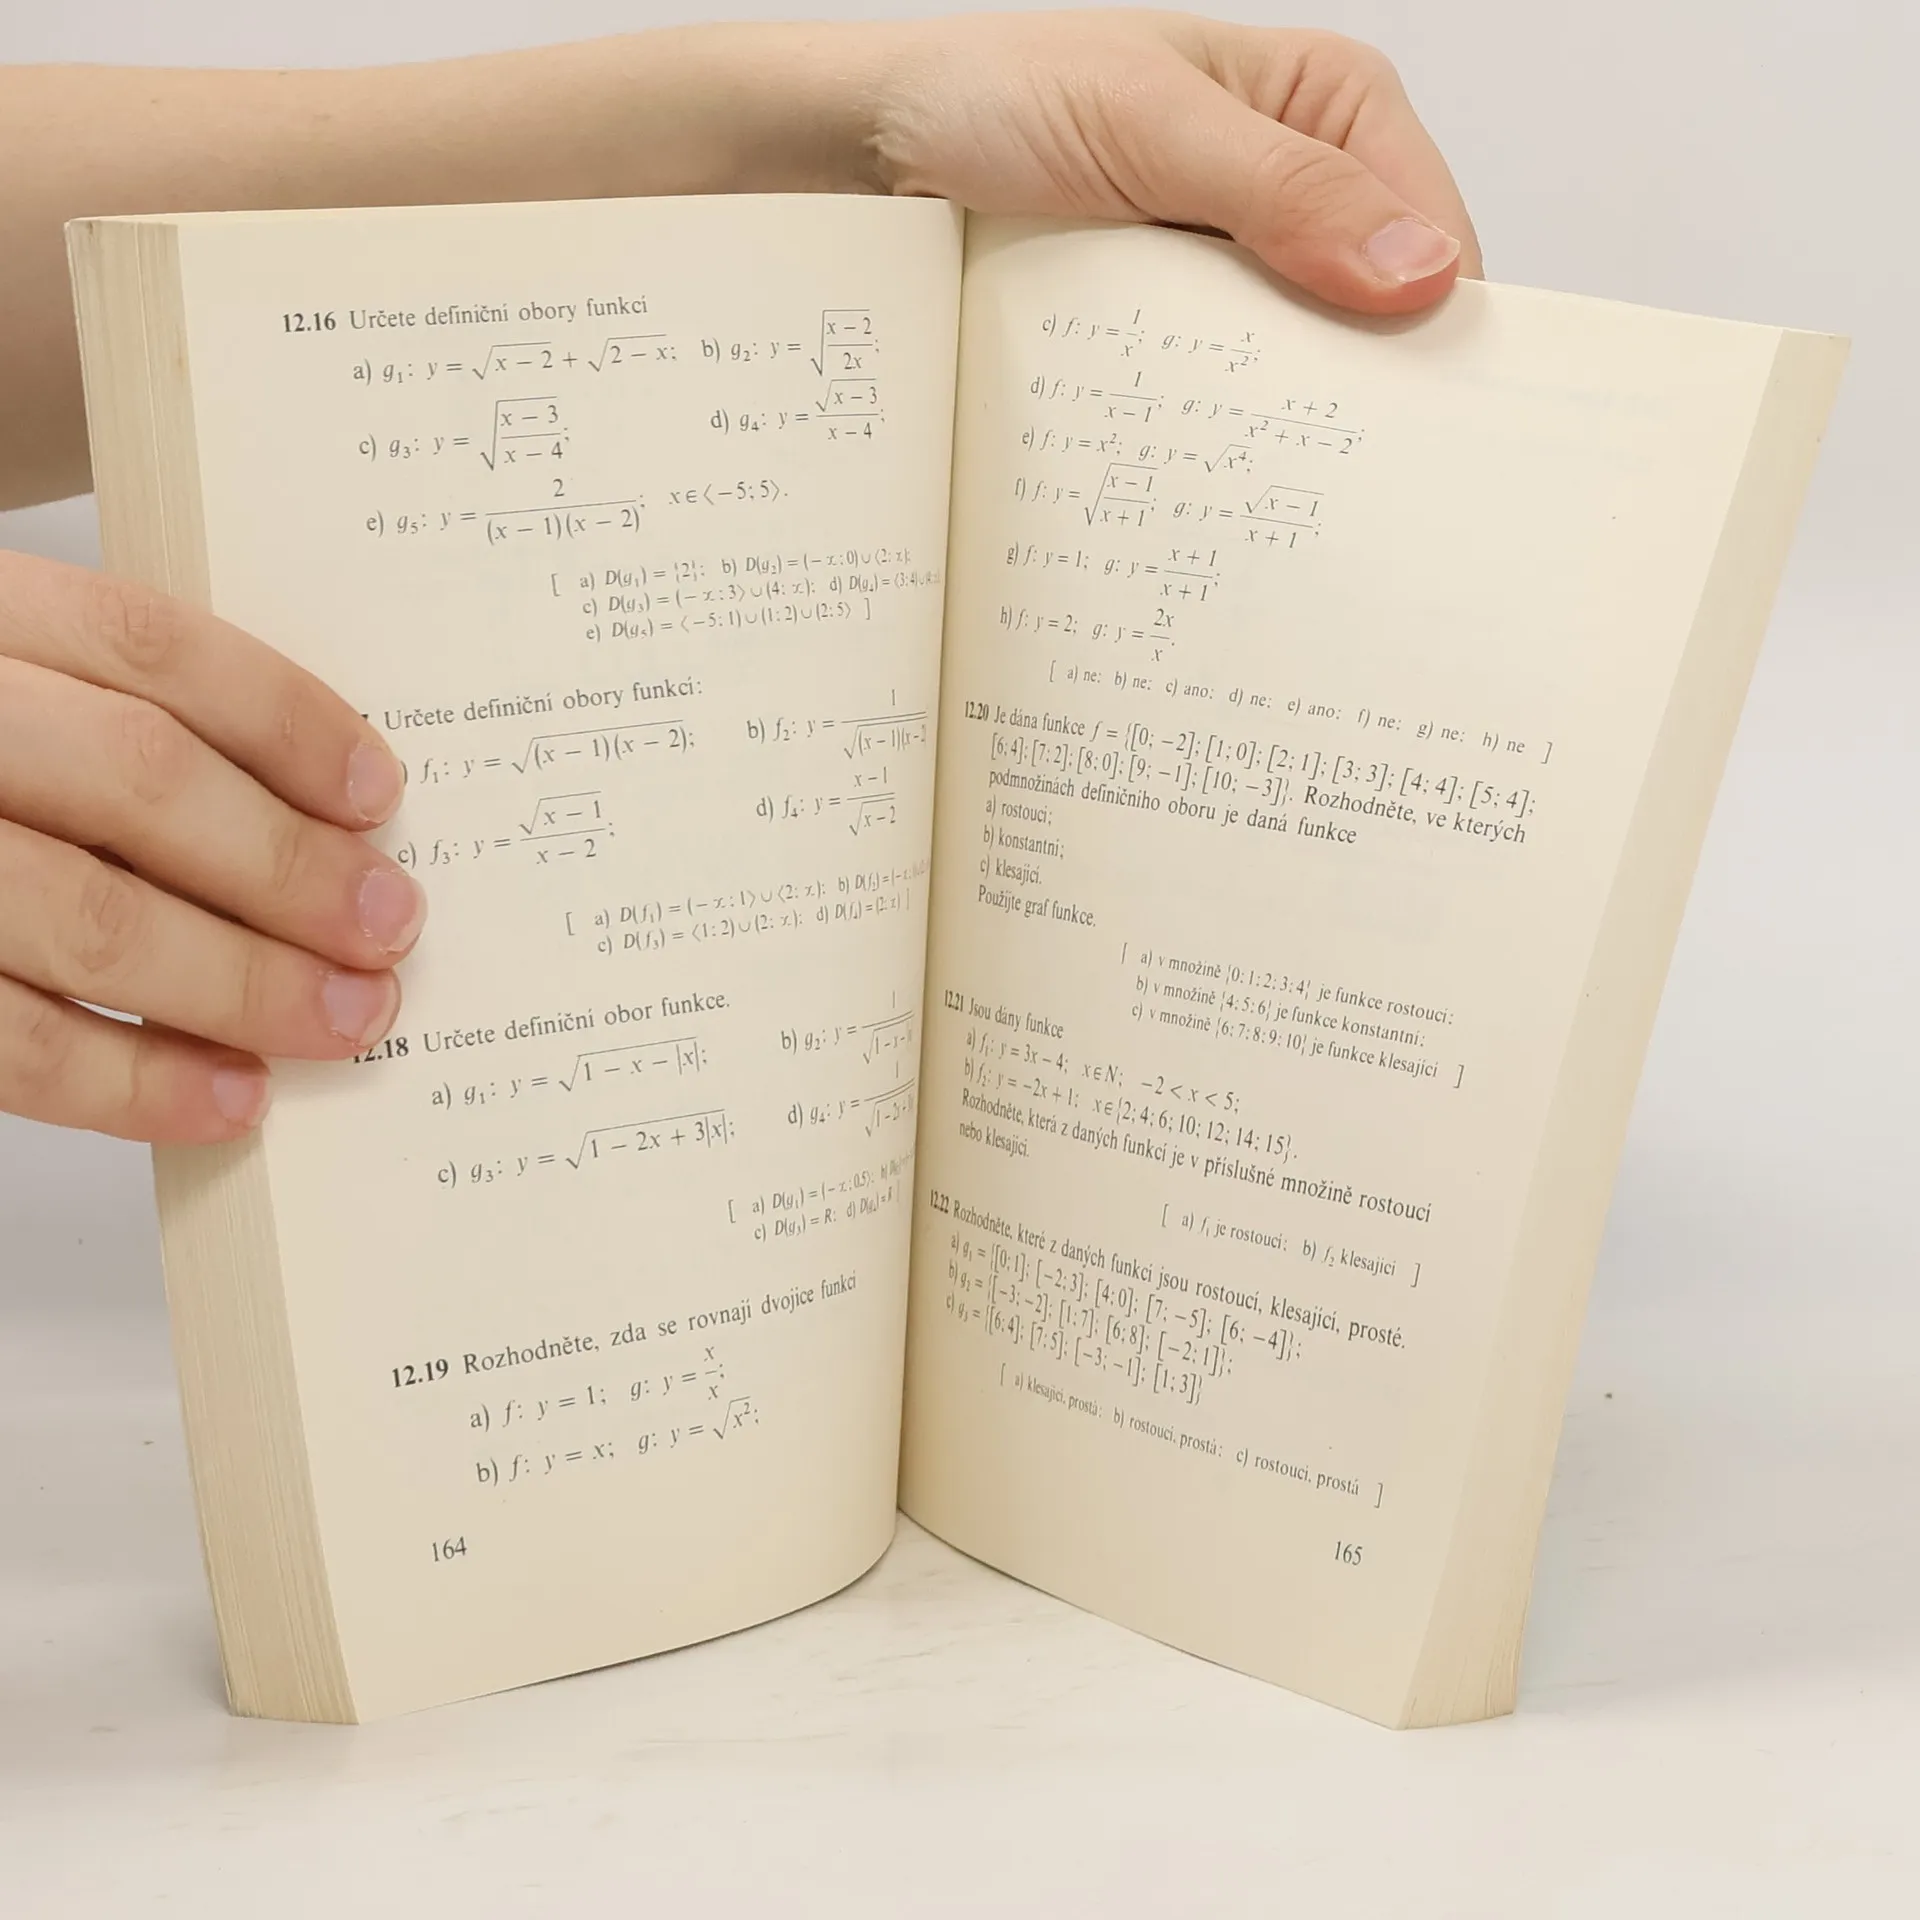 12.16 Určete definiční obory funkcí
a) g₁: y = √(x − 2) + √(2 − x); b) g₂: y = √((x − 2)/(2x));
c) g₃: y = √((x − 3)/(x − 4)); d) g₄: y = √(x − 3)/(x − 4);
e) g₅: y = 2/((x − 1)(x − 2)); x∈⟨−5; 5⟩.
[ a) D(g₁) = {2}; b) D(g₂) = (−∞; 0)∪⟨2; ∞);
c) D(g₃) = (−∞; 3⟩∪(4; ∞); d) D(g₄) = ⟨3; 4)∪(4; ∞)
e) D(g₅) = ⟨−5; 1)∪(1; 2)∪(2; 5⟩ ]
Určete definiční obory funkcí:
) f₁: y = √((x − 1)(x − 2)); b) f₂: y = 1/√((x − 1)(x − 2
c) f₃: y = √(x − 1)/(x − 2); d) f₄: y = (x − 1)/√(x − 2)
[ a) D(f₁) = (−∞; 1⟩∪⟨2; ∞); b) D(f₂) = (−∞
c) D(f₃) = ⟨1; 2)∪(2; ∞); d) D(f₄) = (2; ∞) ]
12.18 Určete definiční obor funkce.
a) g₁: y = √(1 − x − |x|); b) g₂: y = 1/√(1 − x −
c) g₃: y = √(1 − 2x + 3|x|); d) g₄: y = 1/√(1 − 2x +
[ a) D(g₁) = (−∞; 0,5⟩; b)
c) D(g₃) = R; d) D(g₄) = R ]
12.19 Rozhodněte, zda se rovnají dvojice funkcí
a) f: y = 1; g: y = x/x;
b) f: y = x; g: y = √(x²);
164
c) f: y = 1/x; g: y = x/x²;
d) f: y = 1/(x − 1); g: y = (x + 2)/(x² + x − 2);
e) f: y = x²; g: y = √(x⁴);
f) f: y = √((x − 1)/(x + 1)); g: y = √(x − 1)/(x + 1);
g) f: y = 1; g: y = (x + 1)/(x + 1);
h) f: y = 2; g: y = 2x/x.
[ a) ne; b) ne; c) ano; d) ne; e) ano; f) ne; g) ne; h) ne ]
12.20 Je dána funkce f = {[0; −2]; [1; 0]; [2; 1]; [3; 3]; [4; 4]; [5; 4];
[6; 4]; [7; 2]; [8; 0]; [9; −1]; [10; −3]}. Rozhodněte, ve kterých
podmnožinách definičního oboru je daná funkce
a) rostoucí;
b) konstantní;
c) klesající.
Použijte graf funkce.
[ a) v množině {0; 1; 2; 3; 4} je funkce rostoucí;
b) v množině {4; 5; 6} je funkce konstantní;
c) v množině {6; 7; 8; 9; 10} je funkce klesající ]
12.21 Jsou dány funkce
a) f₁: y = 3x − 4; x∈N; −2 < x < 5;
b) f₂: y = −2x + 1; x∈{2; 4; 6; 10; 12; 14; 15}.
Rozhodněte, která z daných funkcí je v příslušné množině rostoucí
nebo klesající.
[ a) f₁ je rostoucí; b) f₂ klesající ]
12.22 Rozhodněte, které z daných funkcí jsou rostoucí, klesající, prosté.
a) g₁ = {[0; 1]; [−2; 3]; [4; 0]; [7; −5]; [6; −4]};
b) g₂ = {[−3; −2]; [1; 7]; [6; 8]; [−2; 1]};
c) g₃ = {[6; 4]; [7; 5]; [−3; −1]; [1; 3]}
[ a) klesající, prostá; b) rostoucí, prostá; c) rostoucí, prostá ]
165